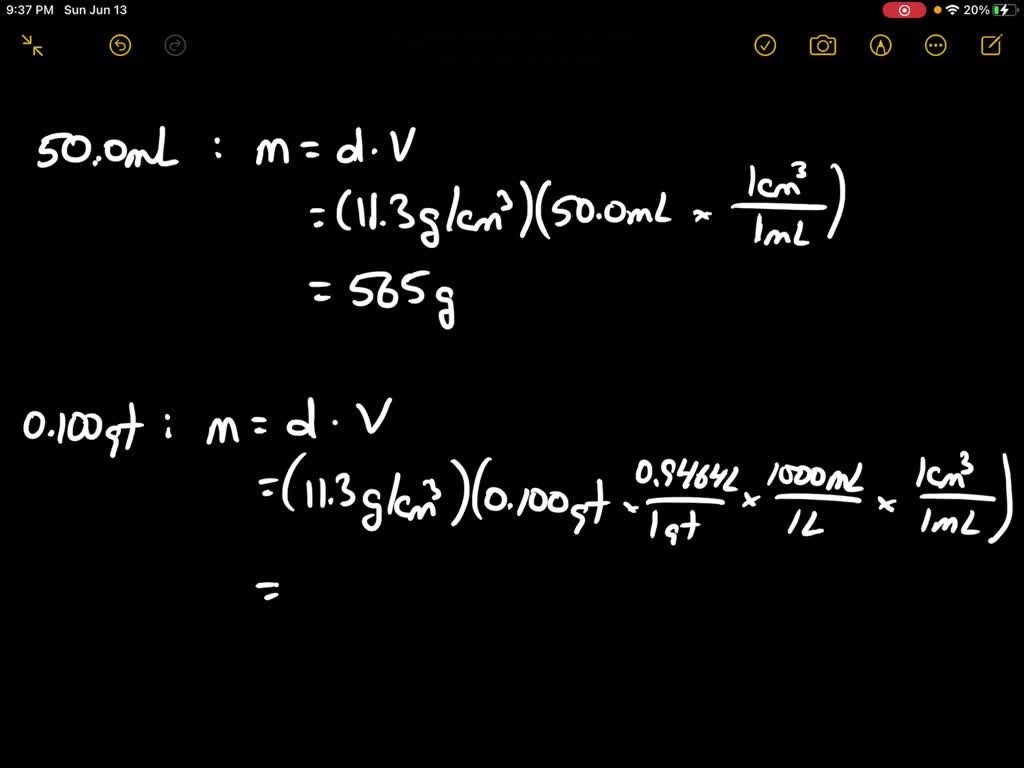 9:37 PM Sun Jun 13 20%
50.0mL : m = d · V
= (11.3g/cm³)(50.0mL × 1cm³/1mL)
= 565g
0.100qt : m = d · V
= (11.3g/cm³)(0.100qt × 0.9464L/1qt × 1000mL/1L × 1cm³/1mL)
=